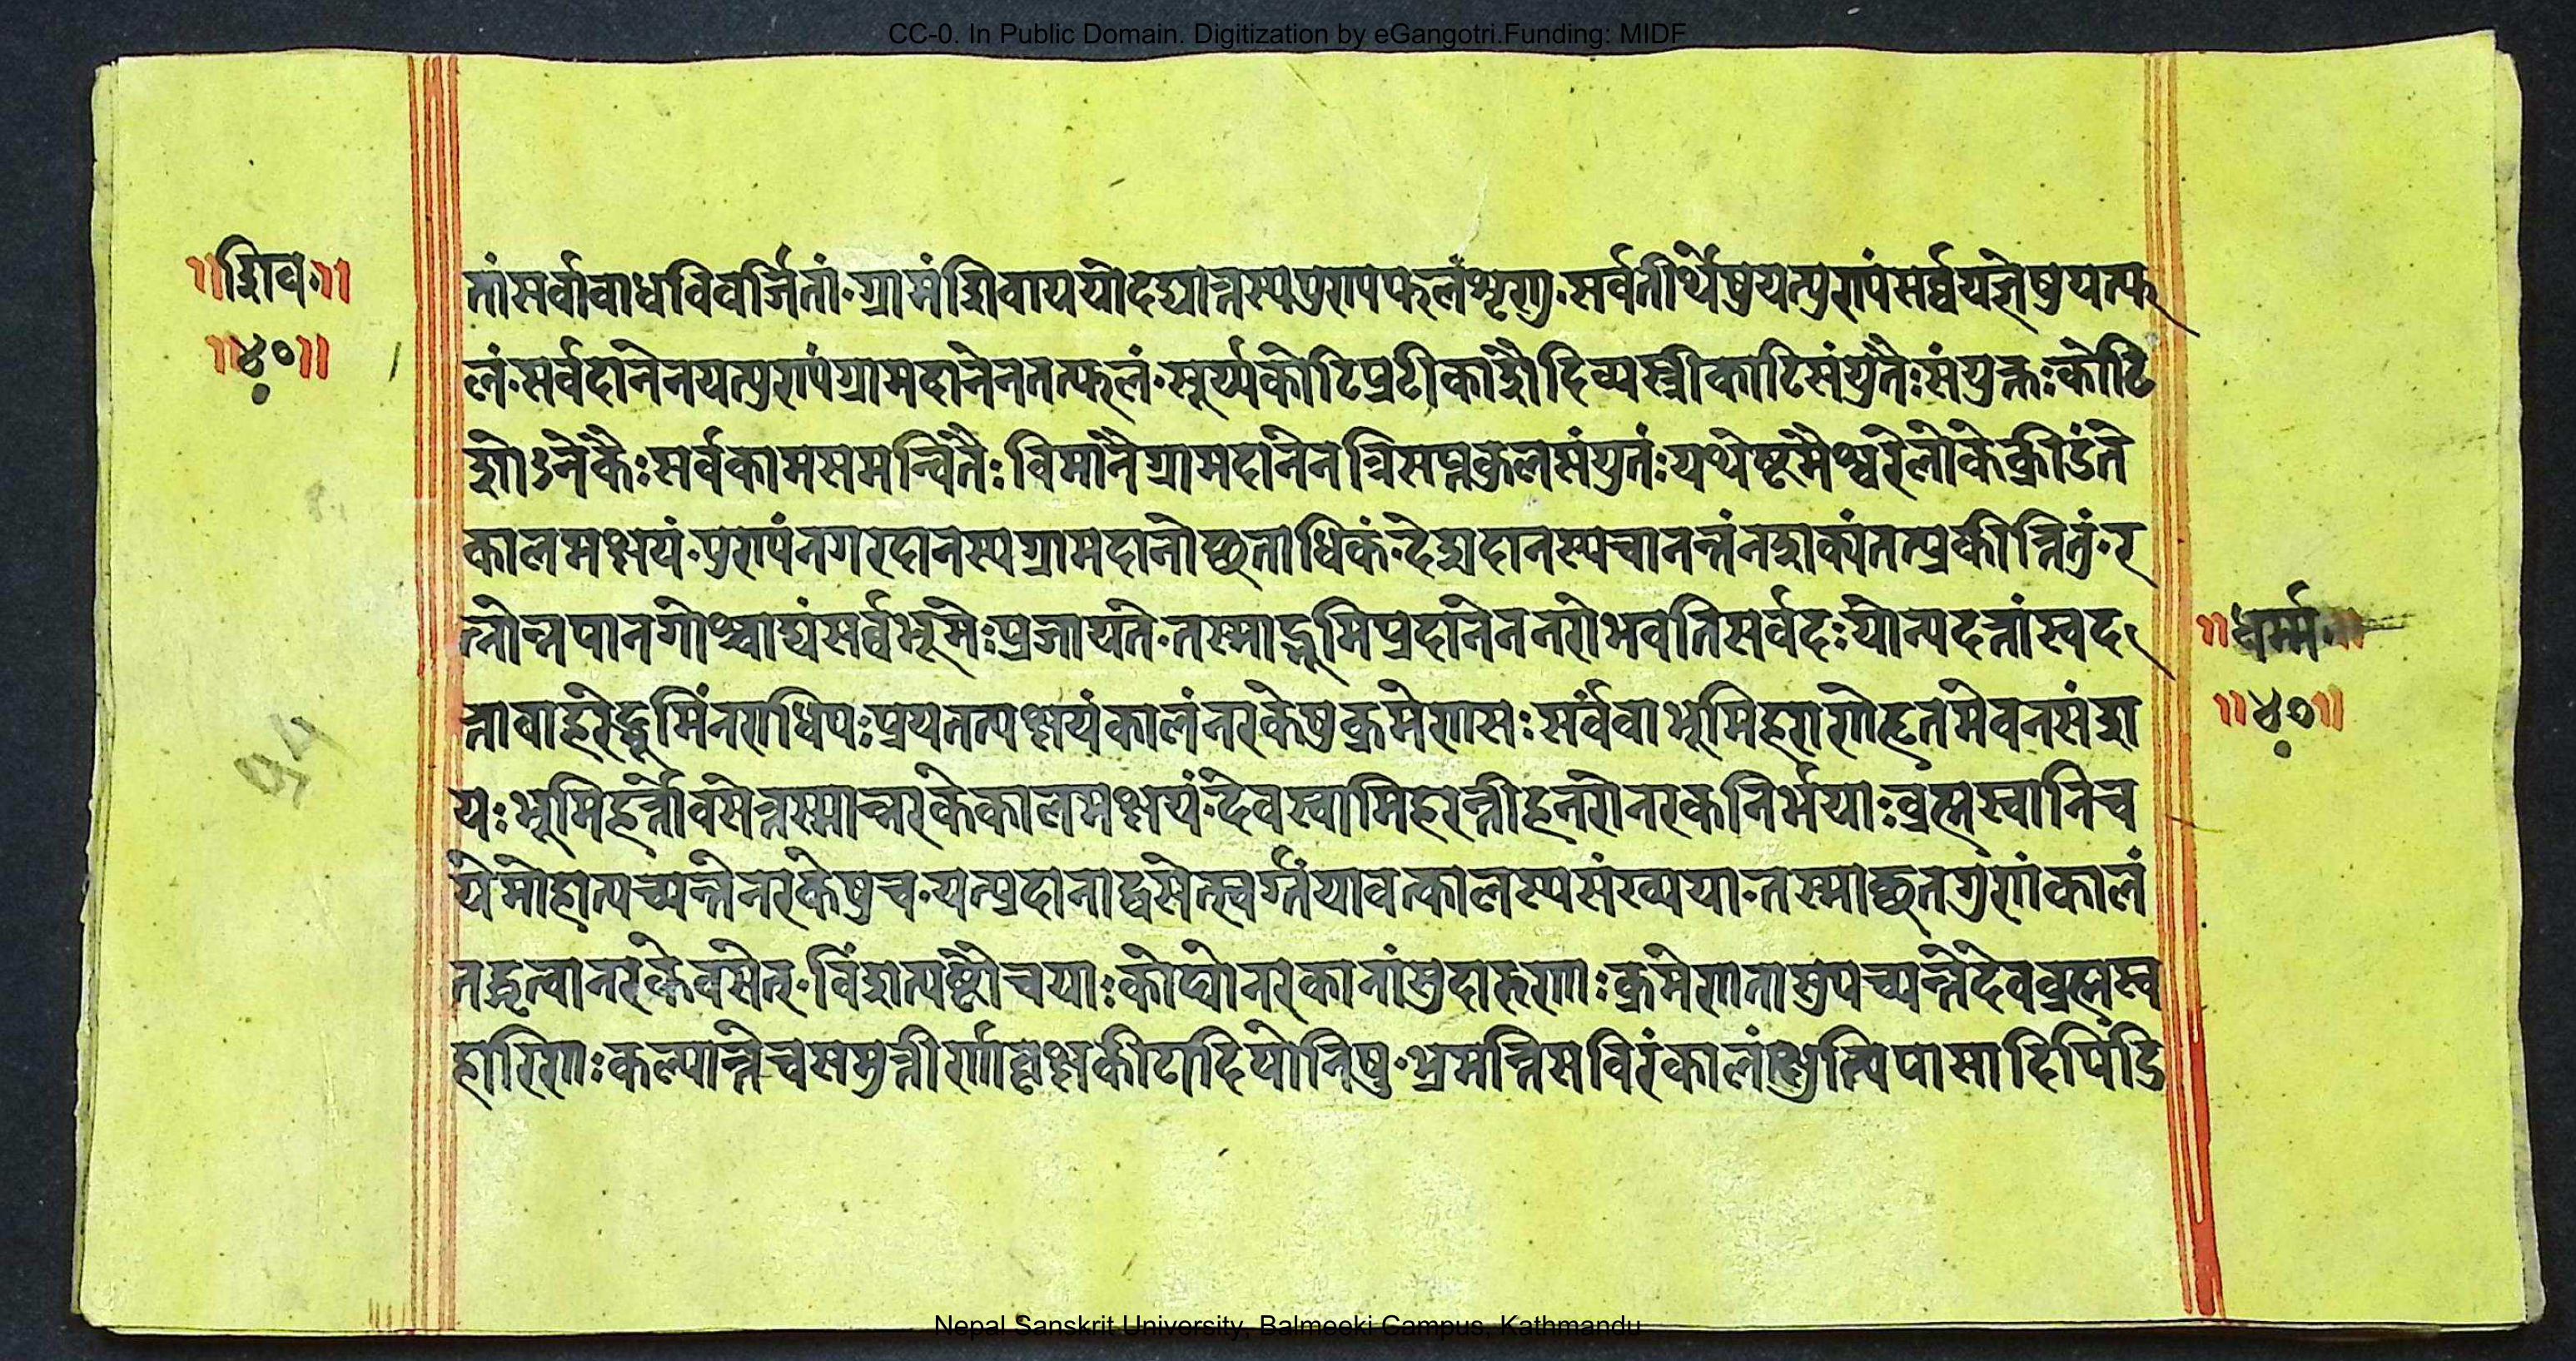 CC-0. In Public Domain. Digitization by eGangotri.Funding: MIDF
॥शिव॥
॥४०॥
तांसर्वावाधविवर्जितां॰ग्रामंशिवाययोदद्यात्तस्यपुण्यफलंशृणु॰सर्वतीर्थेषुयत्पुण्यंसर्व्वयज्ञेषुयत्फ
लं॰सर्वदानेनयत्पुण्यंग्रामदानेनतत्फलं॰सूर्य्यकोटिप्रटीकाशैदिव्यस्त्रीकाटिसंयुतैःसंयुक्तःकोटि
शोऽनेकैःसर्वकामसमन्वितैःविमानैग्रामदानेनत्रिसप्तकुलसंयुतंःयथेष्टमैश्वरेलोकेक्रीडते
कालमक्षयं॰पुण्यंनगरदानस्यग्रामदानोछताधिकं॰देशदानस्यचानन्तंनशक्यंतत्प्रकीर्त्तितुं॰र
त्नोन्नपानगोश्चाद्यंसर्व्वभूमेःप्रजायते॰तस्माद्भूमिप्रदानेननरोभवतिसर्वदःयोन्यदत्तांस्वद
त्तावाहरेद्भूमिंनराधिपःप्रयतत्यक्षयंकालंनरकेषुक्रमेणसःसर्ववाभूमिहराणेहृतमेवनसंश
यःभूमिहर्त्तावसेत्तस्मान्नरकेकालमक्षयं॰देवस्वामिहरन्तीहनरोनरकनिर्भयाःव्रह्मस्वानिच
येमोहात्पच्यन्तेनरकेषुच॰यत्प्रदानाद्वसेत्स्वर्गंतयावत्कालस्यसंख्यया॰तस्माच्छतगुणंकालं
तद्धृत्वानरकेवसेत्॰विंशत्यष्टौचयाःकोट्योनरकानांसुदारुणाःक्रमेणतासुपच्यन्तेदेवव्रह्मस्व
हारिणःकल्पान्तेचसमुत्तीर्णावृक्षकीटादियोनिषु॰भ्रमन्तिसविरंकालंक्षुत्पिपासादिपिडि
॥धर्म्म॥
॥४०॥
Nepal Sanskrit University, Balmeeki Campus, Kathmandu